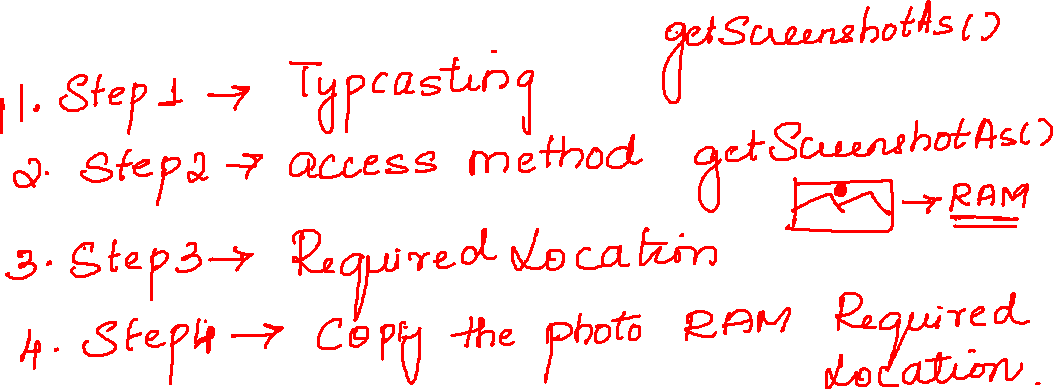 getScreenshotAs()
1. Step 1 → Typcasting
2. Step2 → access method getScreenshotAs()
→ RAM
3. Step3 → Required Location
4. Step4 → Copy the photo RAM Required
Location.